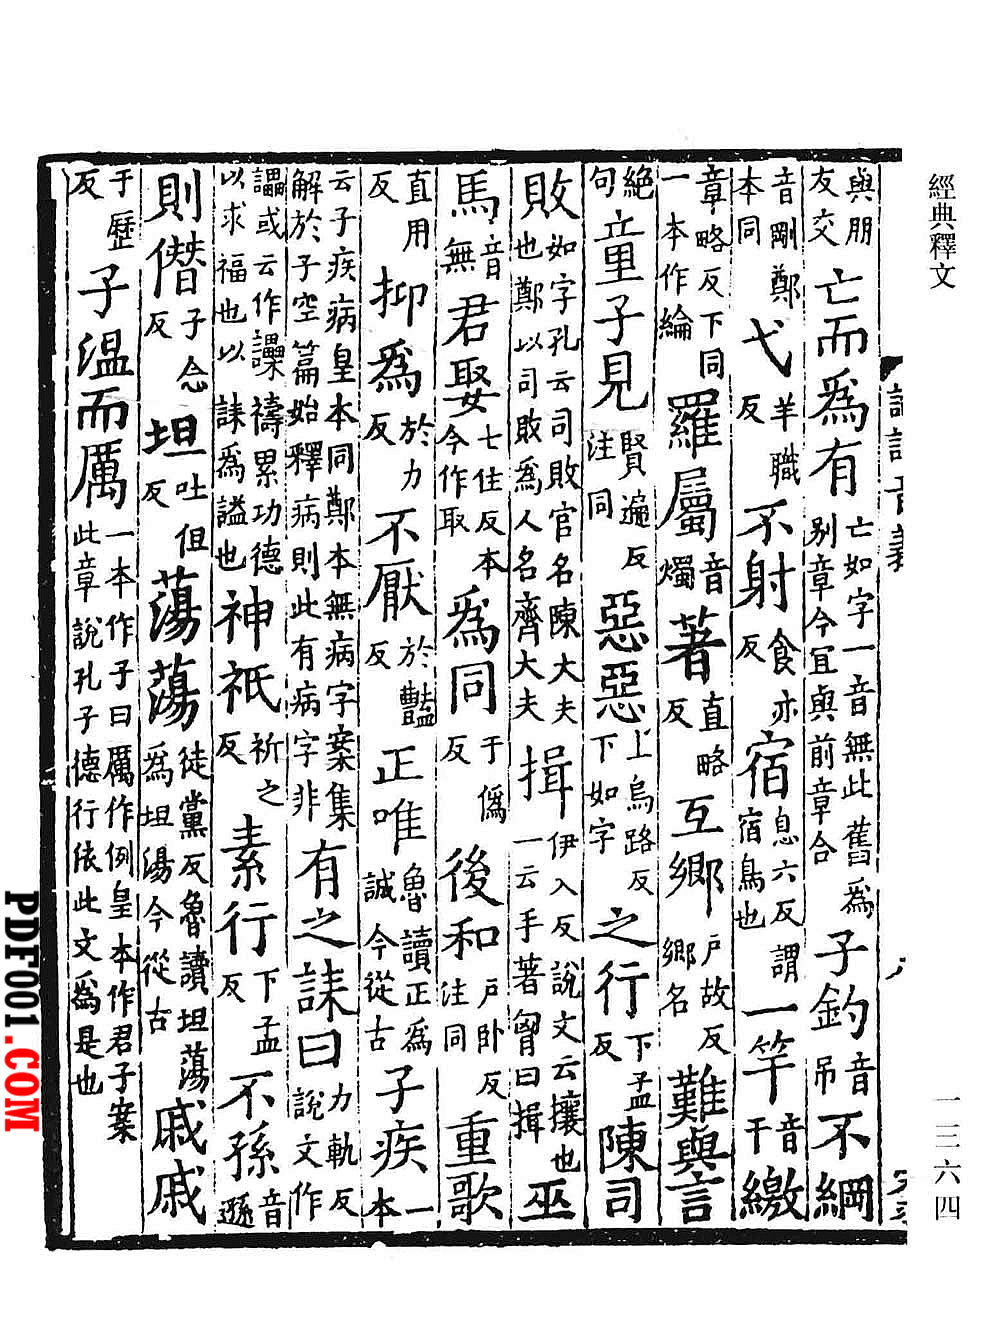 經典釋文
一三六四
與朋友交亡而爲有亡如字一音無此舊爲別章今宜與前章合子釣音吊不綱
音剛鄭本同弋羊職反不射食亦反宿息六反謂宿鳥也一竿音干繳
章略反下同一本作綸羅屬音燭著直略反互鄉戶故反鄉名難與言
絕句童子見賢遍反注同惡惡上烏路反下如字之行下孟反陳司
敗如字孔云司敗官名陳大夫也鄭以司敗爲人名齊大夫揖伊入反說文云攘也一云手著胷曰揖巫
馬音無君娶七住反本今作取爲同于僞反後和戶卧反注同重歌
直用反抑爲於力反不厭於豔反正唯魯讀正爲誠今從古子疾一本
云子疾病皇本同鄭本無病字案集解於子空篇始釋病則此有病字非有之誄曰力軌反說文作
讄或云作讄禱累功德以求福也以誄爲謚也神祇祈之反素行下孟反不孫音遜
則僭子念反坦吐但反蕩蕩徒黨反魯讀坦蕩爲坦湯今從古戚戚
于歷反子溫而厲一本作子曰厲作例皇本作君子案此章說孔子德行依此文爲是也
PDF001.COM